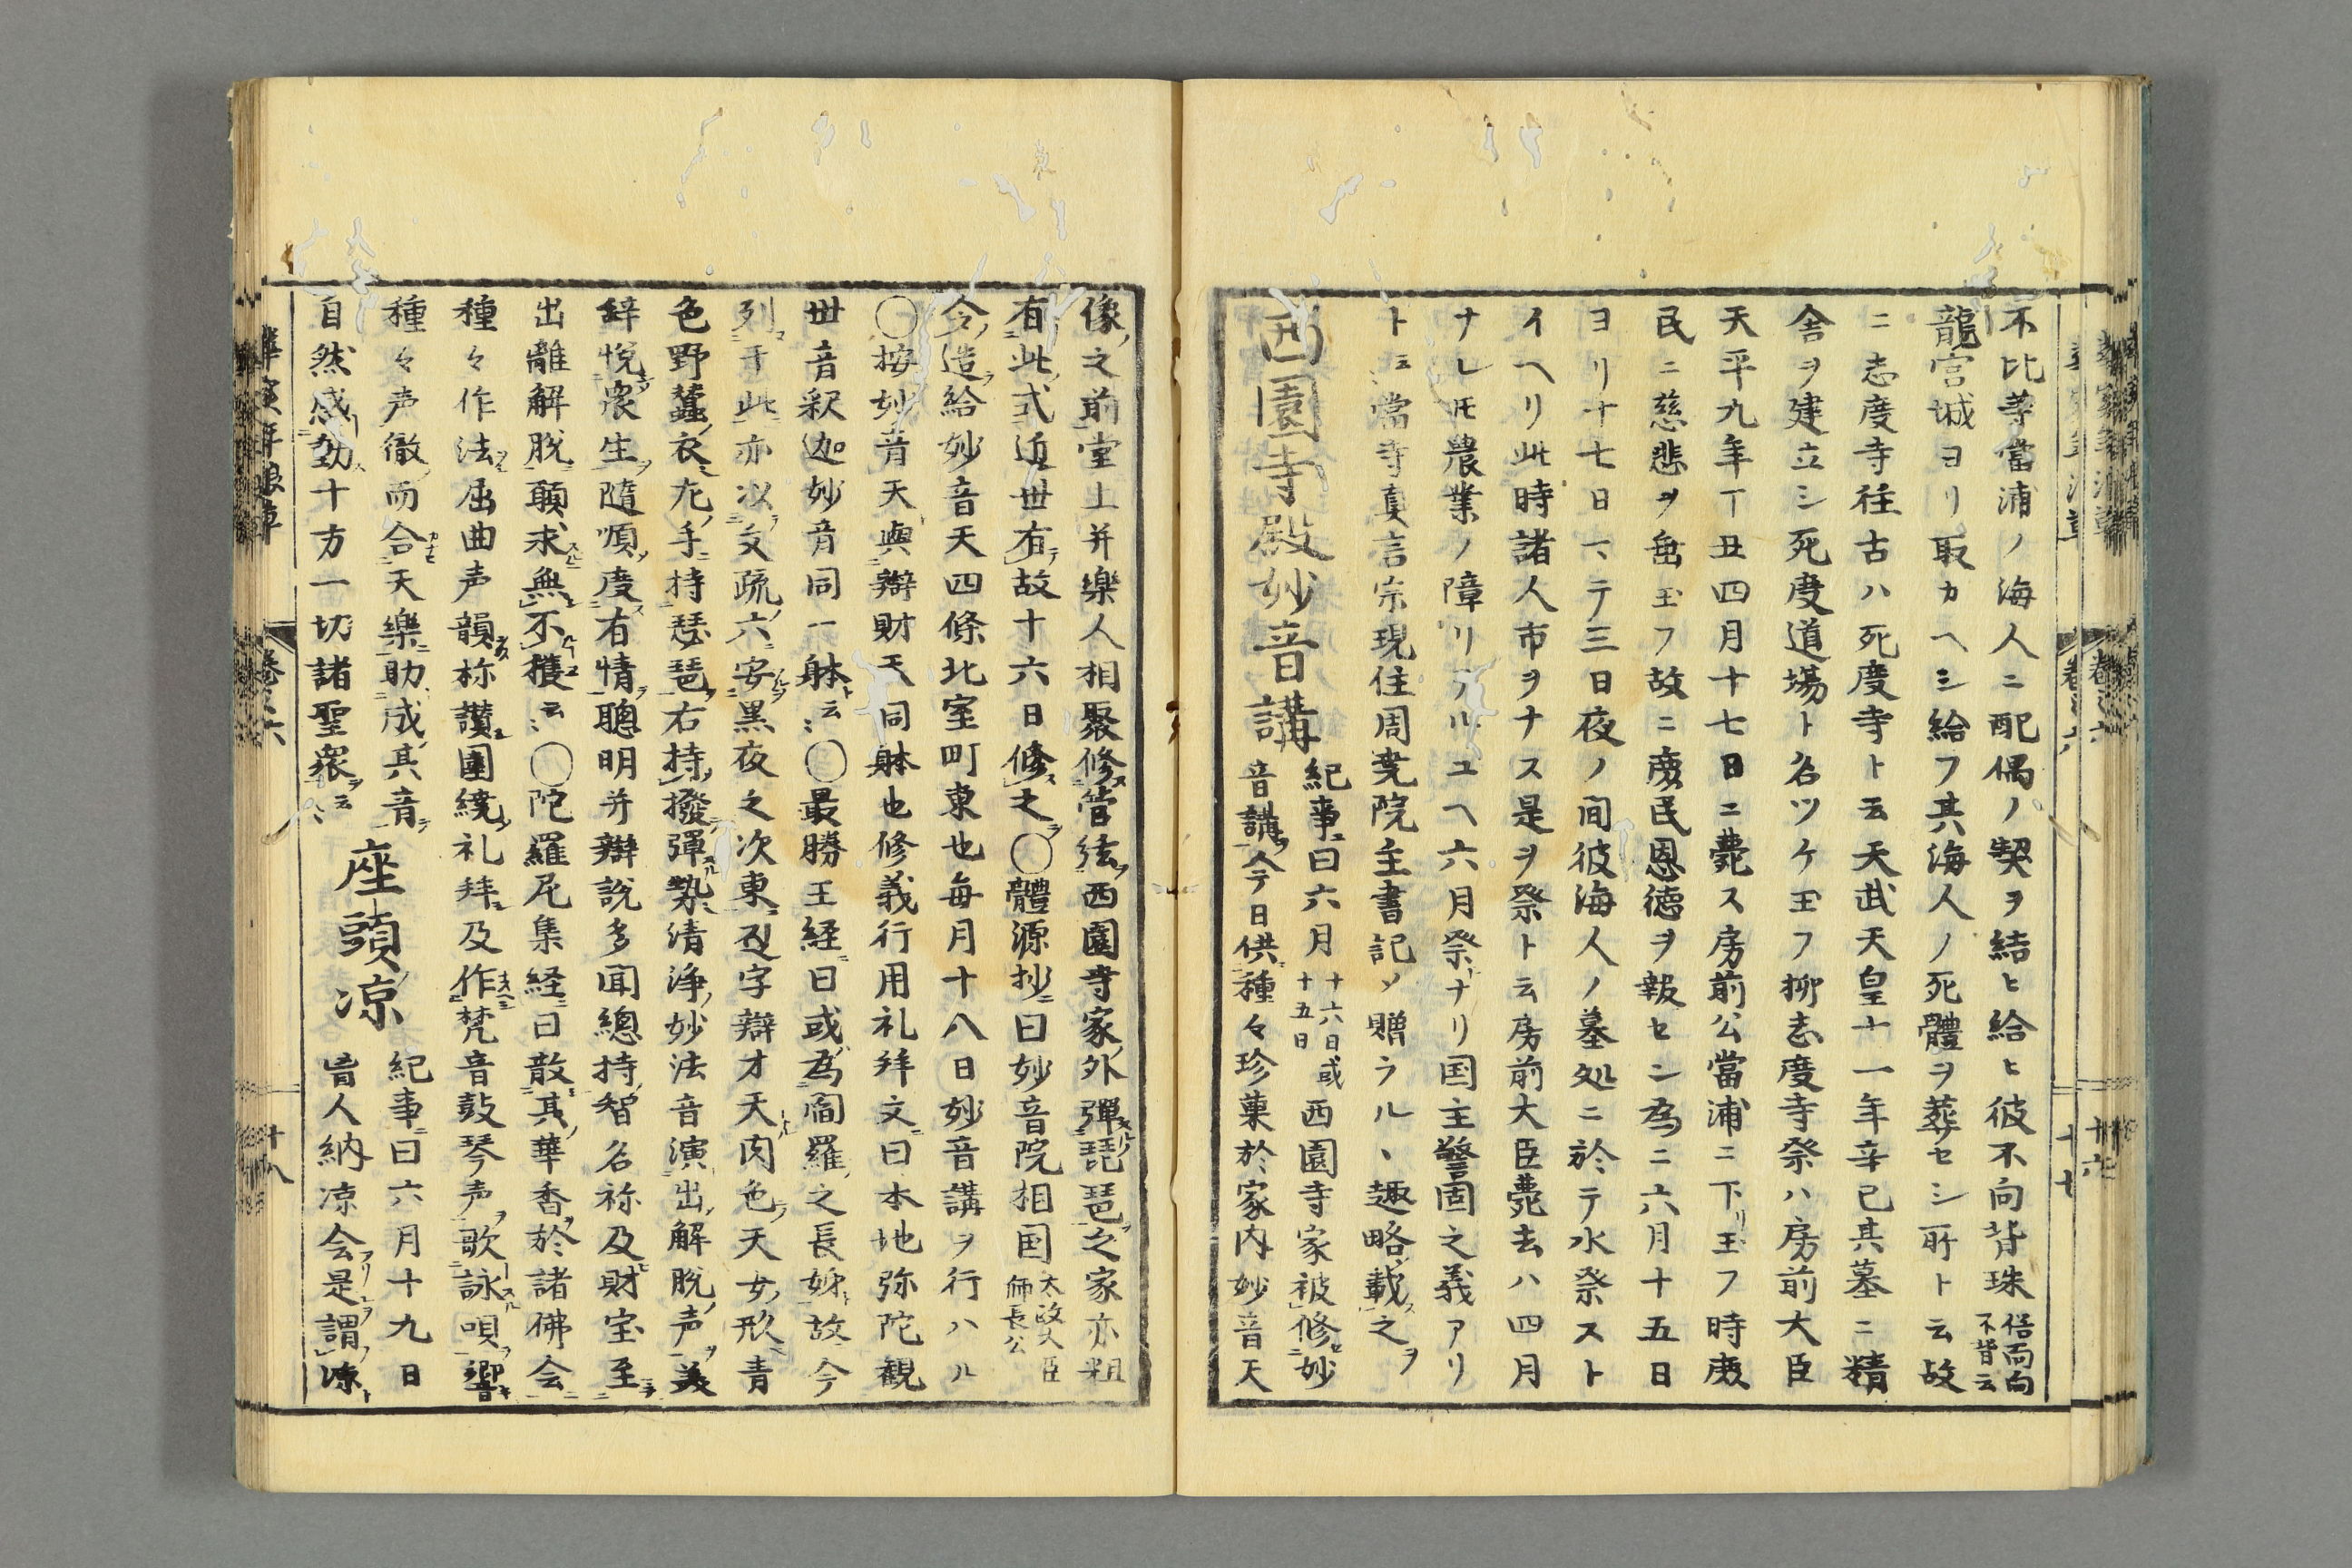 不比等當浦ノ海人ニ配偶ノ契ヲ結ヒ給ヒ彼不向背珠俗面向不背云
龍宮城ヨリ取カヘシ給フ其海人ノ死體ヲ葬セシ所ト云故
ニ志度寺往古ハ死度寺ト云天武天皇十一年辛巳其墓ニ精
舎ヲ建立シ死度道場ト名ツケ玉フ抑志度寺祭ハ房前大臣
天平九年丁丑四月十七日ニ薨ス房前公當浦ニ下リ玉フ時庻
民ニ慈悲ヲ垂玉フ故ニ庻民恩徳ヲ報センカ為ニ六月十五日
ヨリ十七日マテ三日夜ノ間彼海人ノ墓処ニ於テ水祭スト
イヘリ此時諸人市ヲナス是ヲ祭ト云房前大臣薨去ハ四月
ナレ𪜈農業ノ障リアルユヘ六月祭ナリ国主警固之義アリ
ト云當寺真言宗現住周堯院主書記ノ贈ラル丶趣略載之
西園寺殿妙音講
紀事曰六月十六日或十五日西園寺家被修妙
音講今日供種々珍菓於家内妙音天
像之前堂上并樂人相聚修管絃西園寺家外彈琵琶之家亦粗
有此式近世有故十六日修之〇體源抄曰妙音院相国太政大臣師長公
令造給妙音天四條北室町東也毎月十八日妙音講ヲ行ハル
〇按妙音天與辯財天同躰也修義行用礼拜文曰本地弥陀観
世音釈迦妙音同一躰云々〇最勝王経曰或為閻羅之長姉故今
列于此亦次文疏六安黒夜之次東辺字辯才天肉色天女形青
色野蠶衣左手持琵琶右持撥彈勢清浄妙法音演出解脱声美
辞悦衆生隨順度有情聰明并辯説多聞總持智名祢及財宝至
出離解脱願求無不獲云々〇陀羅尼集経曰散其華香於諸佛会
種々作法屈曲声韻称讃圍繞礼拜及作梵音鼓琴声歌詠唄響
種々声徹而合天樂助成其音
自然感動十方一切諸聖衆云々
座頭凉
紀事曰六月十九日
盲人納凉会是謂凉
卷之六
十八